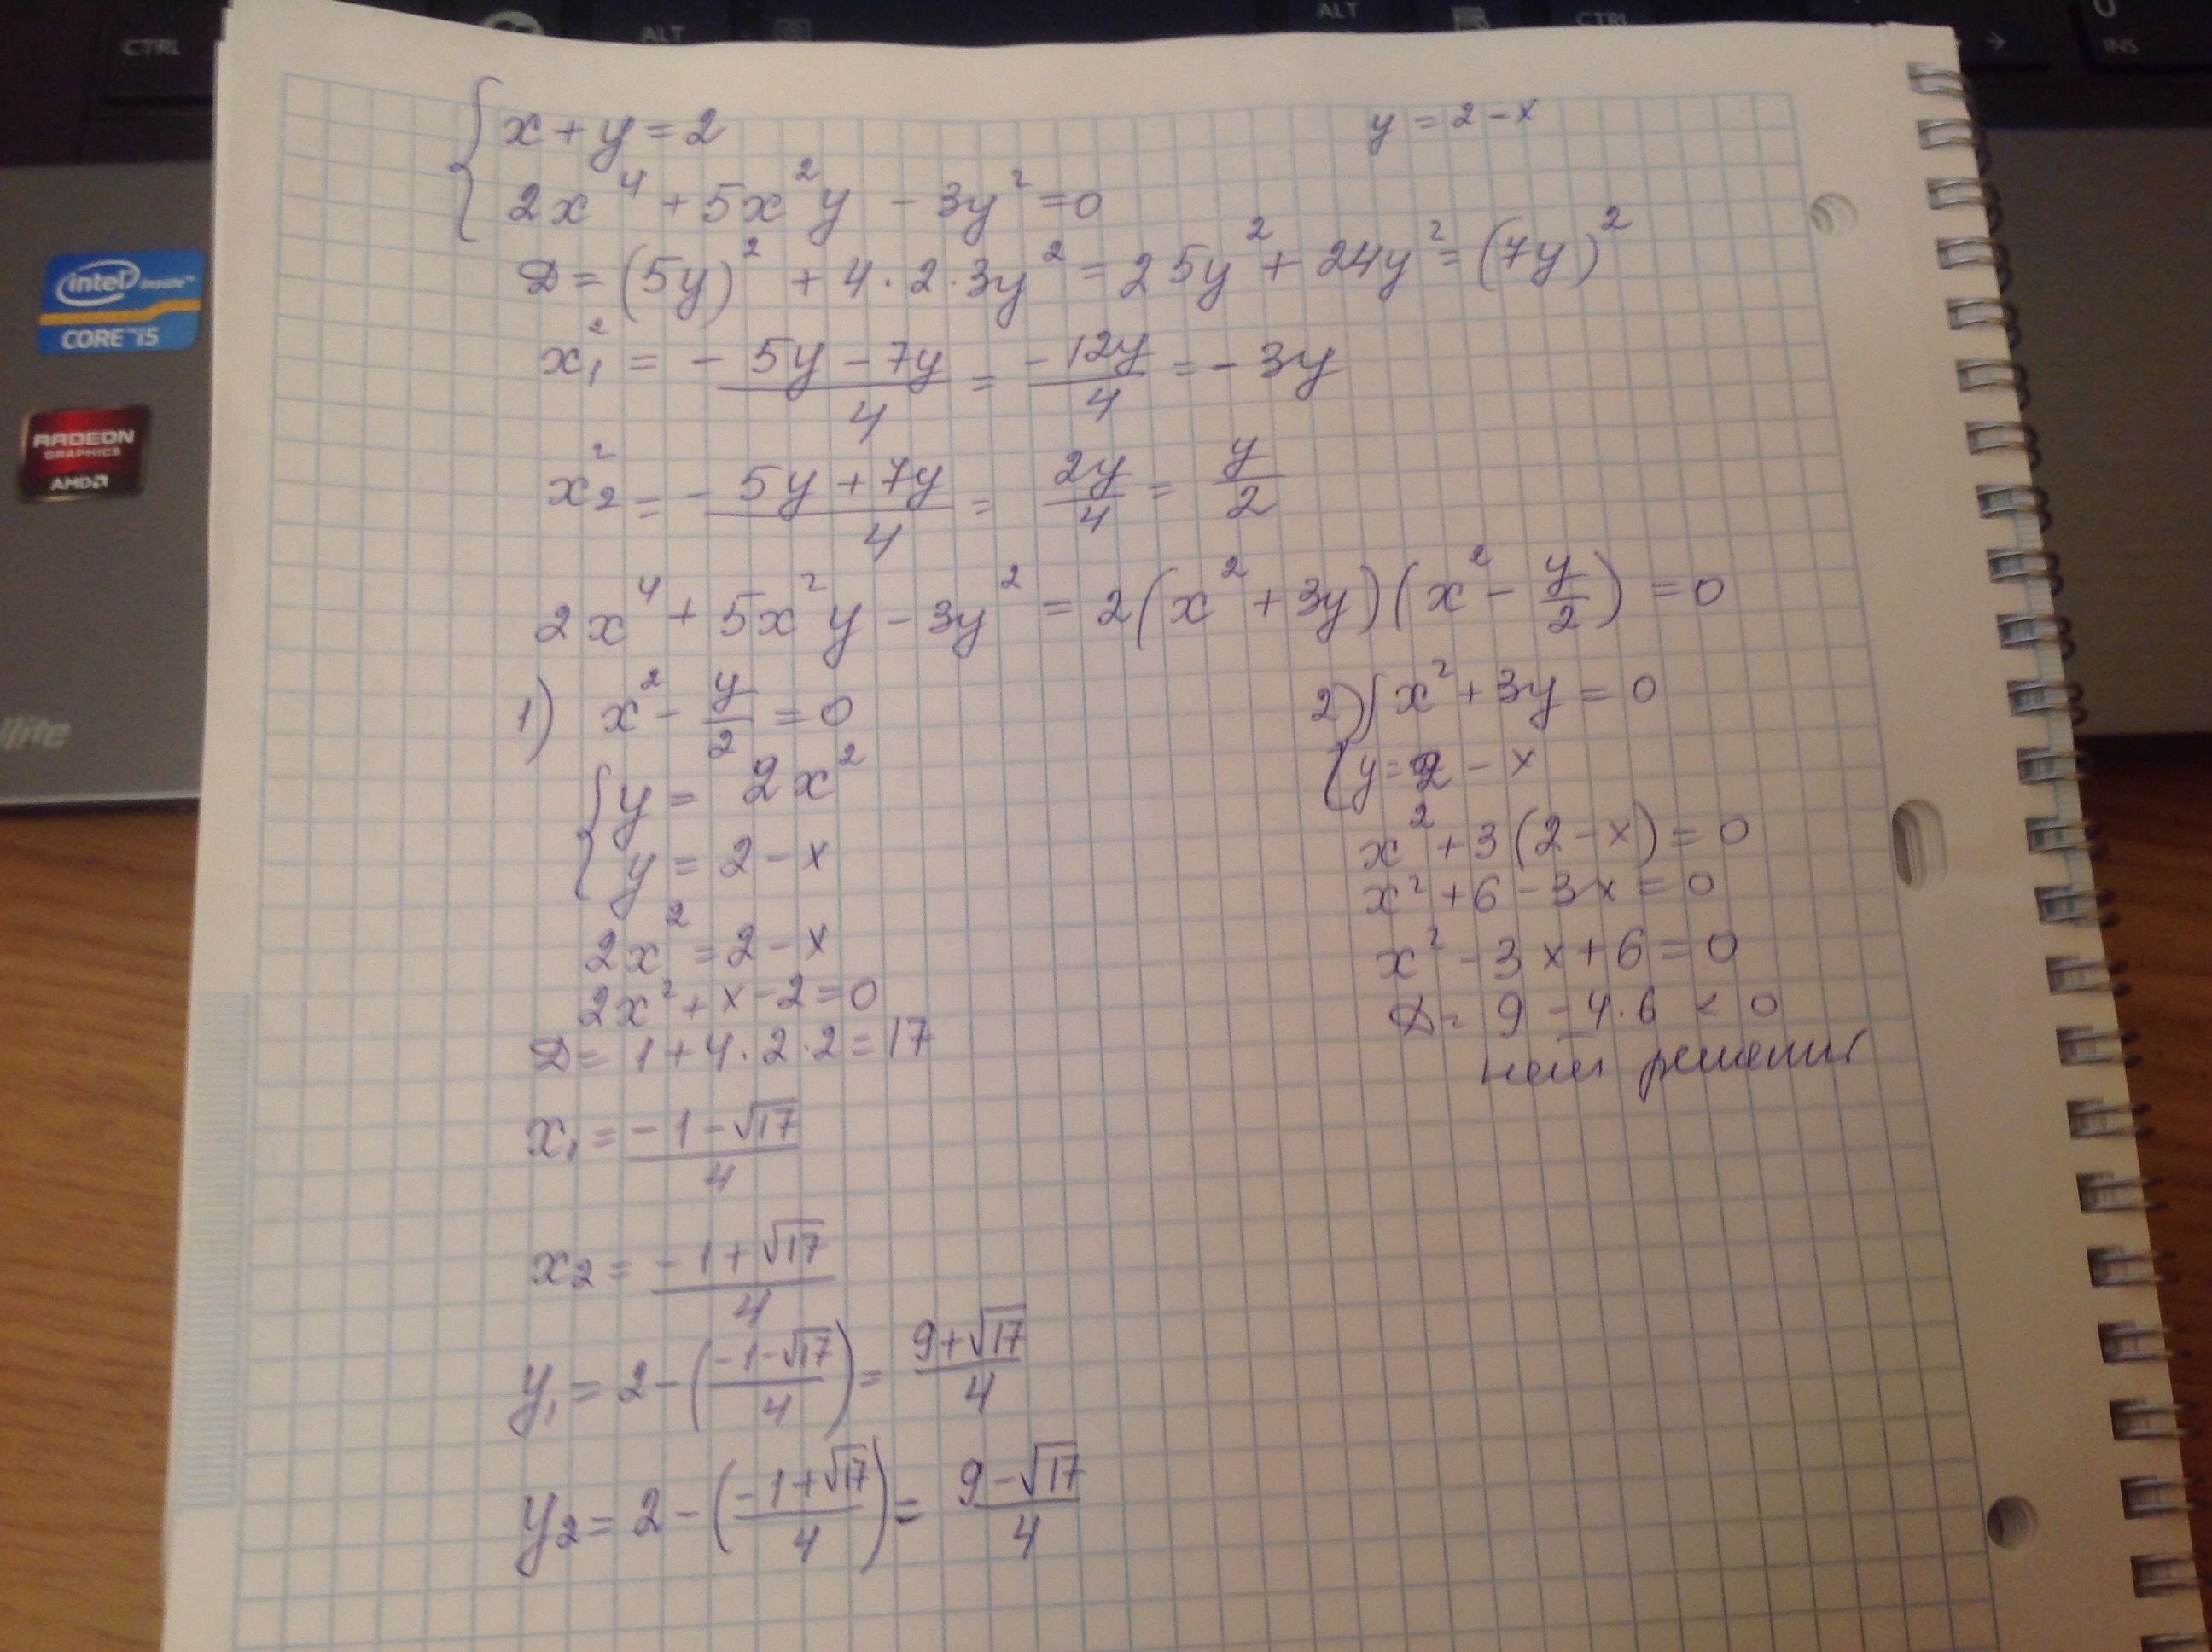 CTRL
ALT
ALT
CTRL
INS
intel inside™
CORE™ i5
RADEON
GRAPHICS
AMD
llite
x + y = 2
y = 2 - x
2x⁴ + 5x²y - 3y² = 0
D = (5y)² + 4·2·3y² = 25y² + 24y² = (7y)²
x₁² = -5y - 7y / 4 = -12y / 4 = -3y
x₂² = -5y + 7y / 4 = 2y / 4 = y / 2
2x⁴ + 5x²y - 3y² = 2(x² + 3y)(x² - y/2) = 0
1) x² - y/2 = 0
y = 2x²
y = 2 - x
2x² = 2 - x
2x² + x - 2 = 0
D = 1 + 4·2·2 = 17
x₁ = -1 - √17 / 4
x₂ = -1 + √17 / 4
y₁ = 2 - (-1 - √17 / 4) = 9 + √17 / 4
y₂ = 2 - (-1 + √17 / 4) = 9 - √17 / 4
2) x² + 3y = 0
y = 2 - x
x² + 3(2 - x) = 0
x² + 6 - 3x = 0
x² - 3x + 6 = 0
D = 9 - 4·6 < 0
нет решения